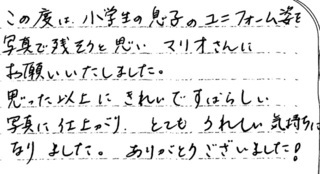 この度は、小学生の息子のユニフォーム姿を
写真で残そうと思い マリオさんに
お願いいたしました。
思った以上に きれいですばらしい
写真に仕上がり、とても うれしい気持ちに
なりました。ありがとうございました!